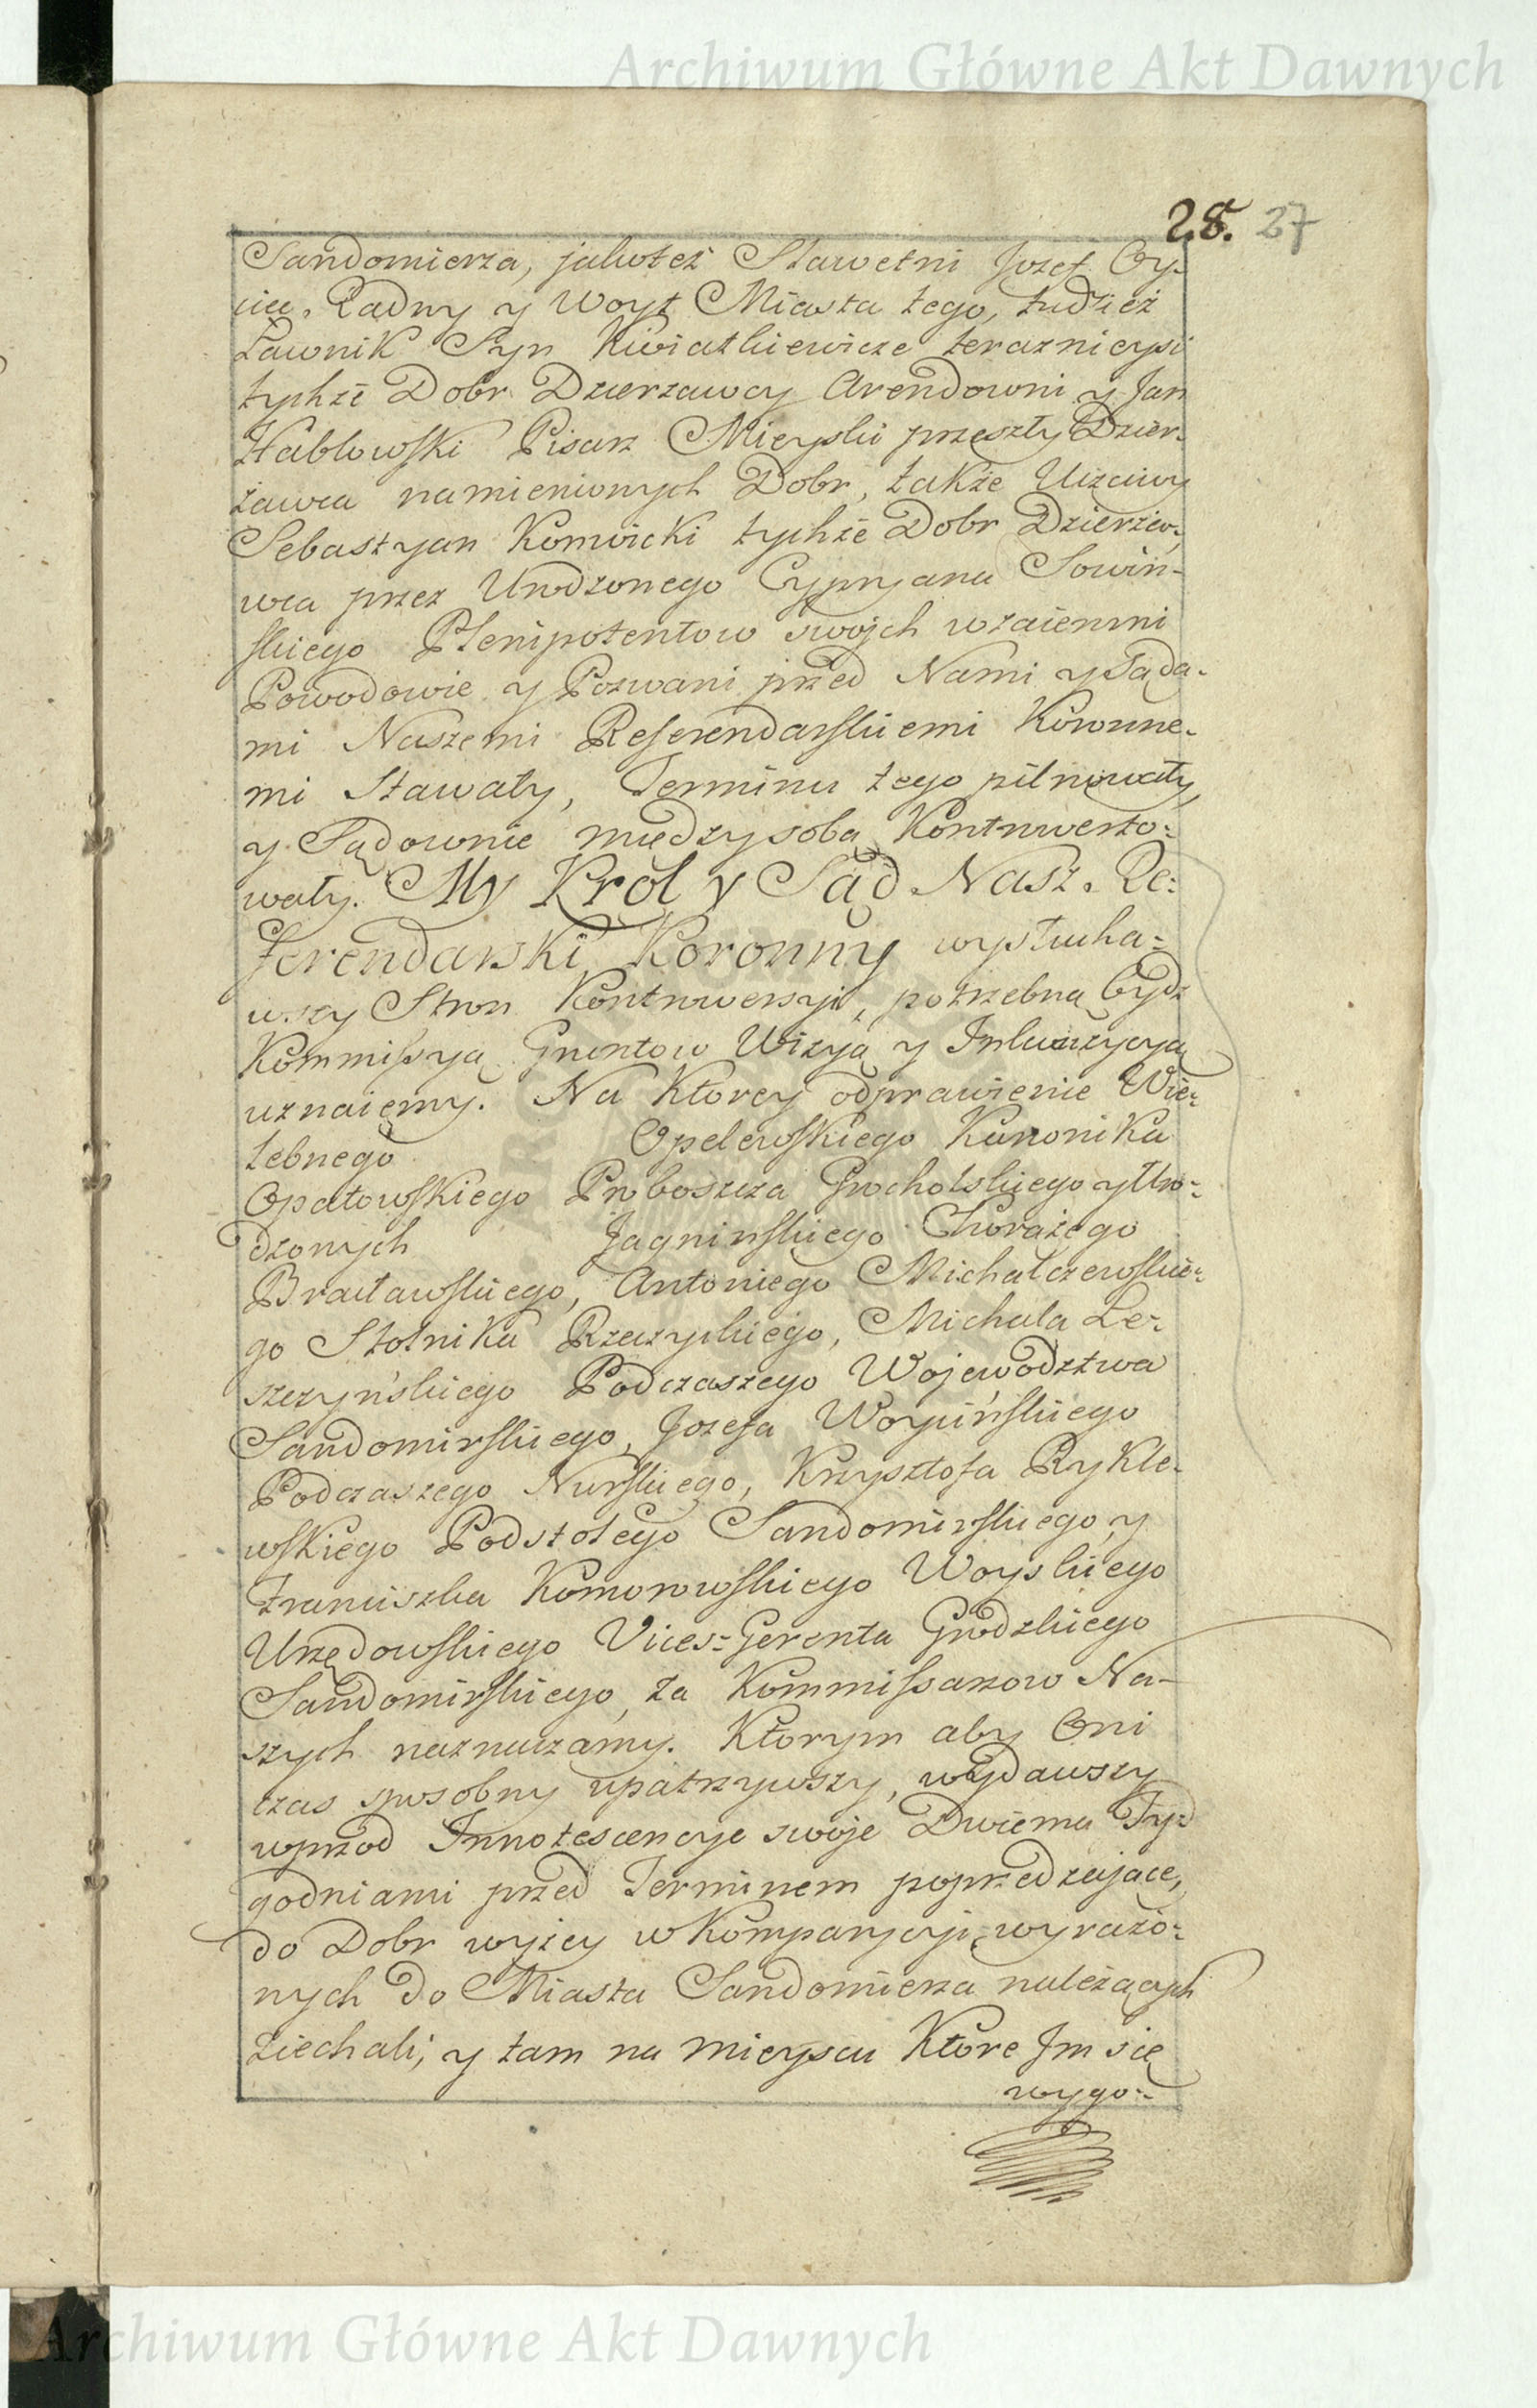 Archiwum Główne Akt Dawnych
28. 27
Sandomierza, jakoteż Sławetni Jozef Oy-
ciec, Radny y Woyt Miasta tego, tudzież
Ławnik Syn Kwiatkiewicze teraznieysi
tychże Dobr Dzierzawcy Arendowni y Jan
Hablowski Pisarz Mieyski przeszły Dzier-
żawca namienionych Dobr, także Uczciwy
Sebastyan Komicki tychże Dobr Dzierżaw-
wca przez Urodzonego Cypryana Sowiń-
skiego Plenipotentow swojch wzaiemni
Powodowie y Pozwani przed Nami y Sąda-
mi Naszemi Referendarskiemi Koronne-
mi Stawały, Terminu tego pilnowały,
y Sądownie między sobą Kontrowerto-
wały. My Krol y Sąd Nasz Re-
ferendarski Koronny wysłucha-
wszy Stron Kontrowersyi, potrzebną bydź
Kommissyą Gruntow Wizyą y Inkwizycyą
uznaiemy. Na Ktorey odprawienie Wie-
lebnego Opelewskiego Kanonika
Opatowskiego Proboszcza Grocholskiego y Uro-
dzonych Jagninskiego Chorążego
Bracławskiego, Antoniego Michalczewskie-
go Stolnika Rzeczyckiego, Michała Le-
szczyńskiego Podczaszego Wojewodztwa
Sandomirskiego, Jozefa Woycińskiego
Podczaszego Nurskiego, Krzysztofa Rykle-
wskiego Podstolego Sandomirskiego, y
Franciszka Komorowskiego Woyskiego
Urzędowskiego Vices-Gerenta Grodzkiego
Sandomirskiego, za Kommissarzow Na-
szych naznaczamy. Ktorym aby Oni
czas sposobny upatrzywszy, wydawszy
wprzod Innotescencye swoje Dwiema Ty-
godniami przed Terminem poprzedzaiące,
do Dobr wyżey w Komparycyi wyrażo-
nych do Miasta Sandomierza należących
ziechali, y tam na mieyscu Ktore Jm się
wygo-
Archiwum Główne Akt Dawnych